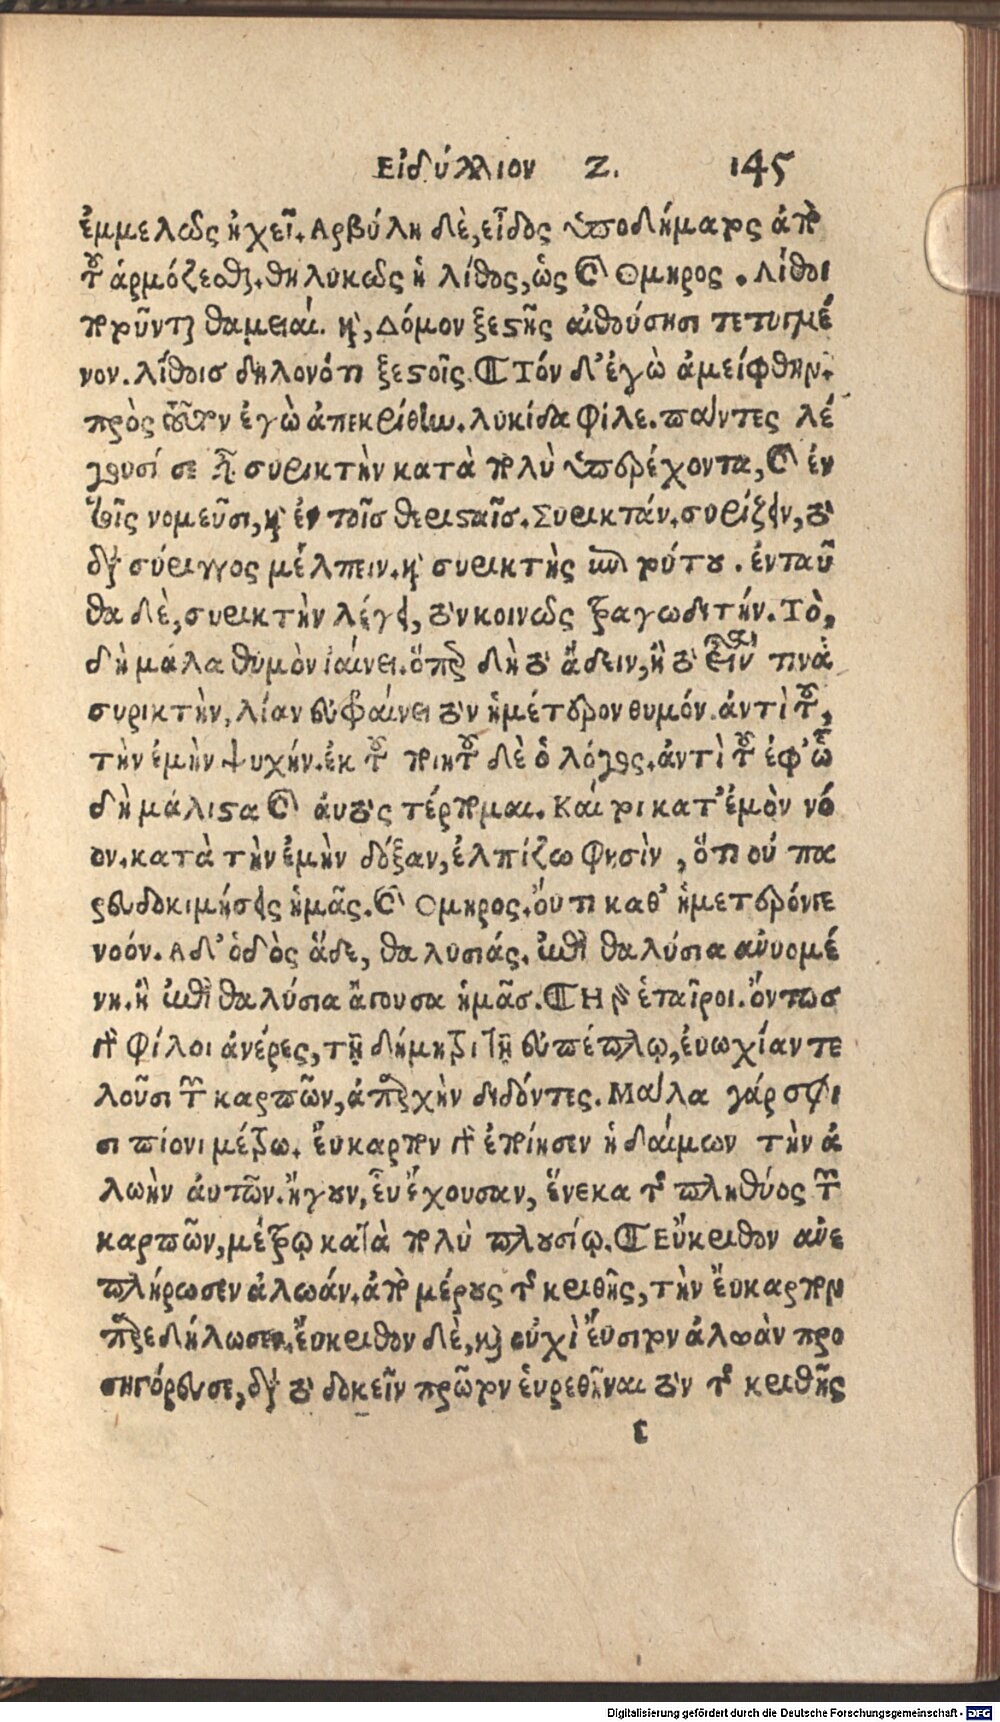 Εἰδύλλιον Ζ. 145
ἐμμελῶς ἠχεῖ. Αρβύλη δὲ, εἶδος ὑποδήματος ἀπὸ
τοῦ ἁρμόζεσθαι. θηλυκῶς ἡ λίθος, ὡς καὶ Ομηρος. Λίθοι
πωτῶντο θαμειαί. καὶ, Δόμον ξεστῆς αἰθούσῃσι τετυγμέ
νον. λίθοισ δηλονότι ξεστοῖς. Τόν δ' ἐγὼ ἀμείφθην.
πρὸς τοῦτον ἐγὼ ἀπεκρίθην. λυκίδα φίλε. πάντες λέ
γουσί σε συρικτὴν κατὰ πολὺ ὑπερέχοντα, καὶ ἐν
τοῖς νομεῦσι, καὶ ἐν τοῖσ θερισταῖσ. Συρικτάν. συρίζειν, τὸ
διὰ σύριγγος μέλπειν. καὶ συρικτὴς ἀπὸ τούτου. ἐνταῦ
θα δὲ, συρικτὴν λέγει, τὸν κοινῶς τραγωδιτήν. Τὸ,
δὴ μάλα θυμὸν ἰαίνει. ὅπερ δὴ τὸ ἄδειν, ἢ τὸ εἶναί τινὰ
συρικτὴν, λίαν εὐφραίνει τὸν ἡμέτερον θυμόν. ἀντὶ τοῦ,
τὴν ἐμὴν ψυχήν. ἐκ τοῦ ποιητοῦ δὲ ὁ λόγος. ἀντὶ τοῦ ἐφ' ᾧ
δὴ μάλιστα καὶ ἀυτὸς τέρπομαι. Καί τοι κατ' ἐμὸν νό
ον. κατὰ τὴν ἐμὴν δόξαν, ἐλπίζω φησὶν, ὅτι οὐ πα
ρευδοκιμήσεις ἡμᾶς. καὶ Ομηρος. ὄυτι καθ' ἡμετερόνγε
νοόν. Α δ' ὁδὸς ἅδε, θαλυσιάς. ἐπὶ θαλύσια ἀγομέ
νη. ἢ ἐπὶ θαλύσια ἄγουσα ἡμᾶσ. Η γὰρ ἑταῖροι. ὄντωσ
οἱ φίλοι ἀνέρες, τῇ δήμητρι τῇ εὐπέπλῳ, ἐυωχίαν τε
λοῦσι τῶν καρπῶν, ἀπαρχὴν διδόντες. Μάλα γάρ σφι
σι πίονι μέτρω. ἔυκαρπον οἱ ἐποίησεν ἡ δαίμων τὴν ἁ
λωὴν ἀυτῶν. ἤγουν, ἐυ ἔχουσαν, ἕνεκα τοῦ πληθύος τῶν
καρπῶν, μέτρῳ κατὰ πολὺ πλουσίῳ. Εὔκριθον ἀνε
πλήρωσεν ἀλωάν. ἀπὸ μέρους τῆς κριθῆς, τὴν ἔυκαρπον
παρεδήλωσεν. ἔυκριθον δὲ, καὶ οὐχὶ ἔυσιτον ἀλωὰν προ
σηγόρευσε, διὰ τὸ δοκεῖν πρῶτον ἑυρεθῆναι τὸν τῆς κριθῆς